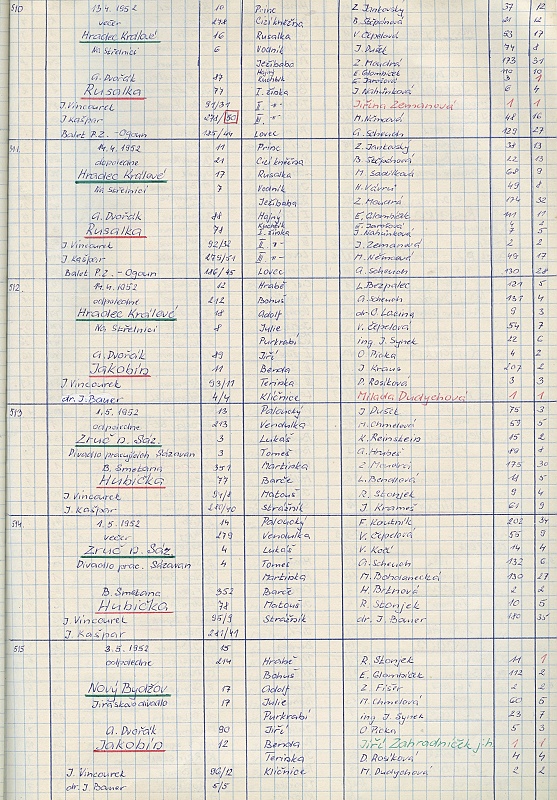 510 13.4.1952 10 Princ Z. Jankovský 37 12
večer 278 Cizí kněžna B. Štěpánová 21 12
Hradec Králové 16 Rusalka V. Čepelová 53 17
Na Střelnici 6 Vodník J. Dušek 74 8
Ježibaba Z. Moudrá 173 31
Hajný E. Glombíček 110 10
A. Dvořák 87 Kuchtík E. Jarošová 3 1
Rusalka 77 I. žínka J. Nahůnková 6 4
J. Vincourek 91/31 II. " Jiřina Zemanová 1 1
J. Kašpar 274/50 III. " M. Němcová 48 16
Balet P.Z. - Ogoun 185/44 Lovec A. Scheuch 129 27
511 14.4.1952 11 Princ Z. Jankovský 38 13
odpoledne 211 Cizí kněžna B. Štěpánová 22 13
Hradec Králové 17 Rusalka M. Sadvíková 68 9
Na Střelnici 7 Vodník H. Vávruš 49 8
Ježibaba Z. Moudrá 174 32
A. Dvořák 88 Hajný E. Glombíček 111 11
Kuchtík E. Jarošová 4 2
Rusalka 78 I. žínka J. Nahůnková 7 5
J. Vincourek 92/32 II. " J. Zemanová 2 2
J. Kašpar 275/51 III. " M. Němcová 49 17
Balet P.Z. - Ogoun 186/45 Lovec A. Scheuch 130 28
512 14.4.1952 12 Hrabě L. Bezpalec 121 5
odpoledne 212 Bohuš A. Scheuch 131 4
Hradec Králové 18 Adolf dr. O. Lacina 9 3
Na Střelnici 8 Julie V. Čepelová 54 7
Purkrabí ing. J. Synek 12 6
A. Dvořák 89 Jiří O. Picka 4 2
Jakobín 11 Benda J. Kraus 207 2
J. Vincourek 93/11 Terinka D. Rosíková 3 3
dr. J. Bauer 4/4 Klíčnice Milada Dudychová 1 1
513 1.5.1952 13 Paloucký J. Dušek 75 3
odpoledne 213 Vendulka M. Chmelová 59 5
Zruč n. Sáz. 3 Lukáš K. Reinstein 15 2
Divadlo pracujících Sázavan 3 Tomeš A. Hrubeš 89 8
B. Smetana 351 Martinka Z. Moudrá 175 30
Hubička 77 Barče L. Bendlová 11 5
J. Vincourek 94/8 Matouš R. Skonjek 9 4
J. Kašpar 280/40 Strážník J. Krameš 61 9
514 1.5.1952 14 Paloucký F. Koutník 202 34
večer 279 Vendulka V. Čepelová 55 9
Zruč n. Sáz. 4 Lukáš V. Kočí 14 4
Divadlo prac. Sázavan 4 Tomeš A. Scheuch 132 6
Martinka M. Bohdanecká 130 27
B. Smetana 352 Barče H. Brtnová 2 2
Hubička 78 Matouš R. Skonjek 10 5
J. Vincourek 95/9 Strážník dr. J. Bauer 180 35
J. Kašpar 281/41
515 3.5.1952 15
odpoledne 214 Hrabě R. Skonjek 11 1
Bohuš E. Glombíček 112 2
Nový Bydžov 17 Adolf Z. Fišer 2 2
Jiráskovo divadlo 17 Julie M. Chmelová 60 5
Purkrabí ing. J. Synek 23 7
A. Dvořák 90 Jiří O. Picka 5 3
Jakobín 12 Benda Jiří Zahradníček j.h. 1 1
Terinka D. Rosíková 4 4
J. Vincourek 96/12 Klíčnice M. Dudychová 2 2
dr. J. Bauer 5/5